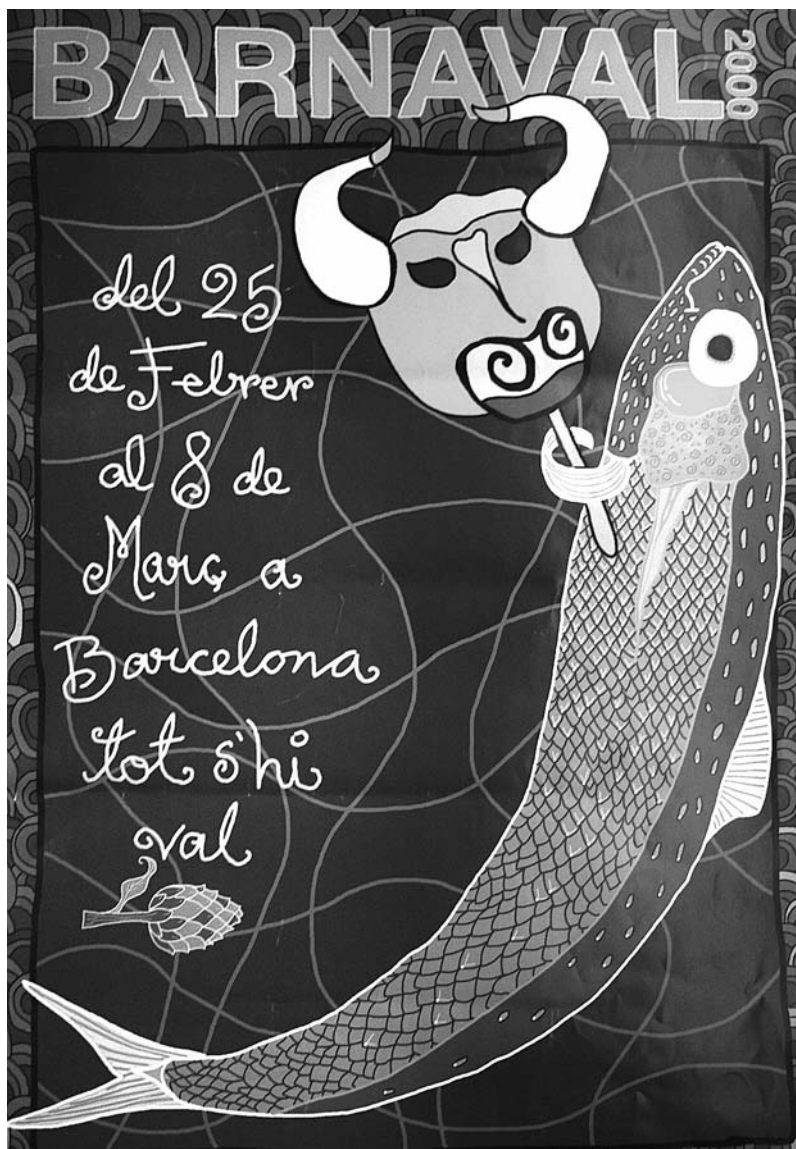 BARNAVAL 2000
del 25
de Febrer
al 8 de
Març a
Barcelona
tot s'hi
val